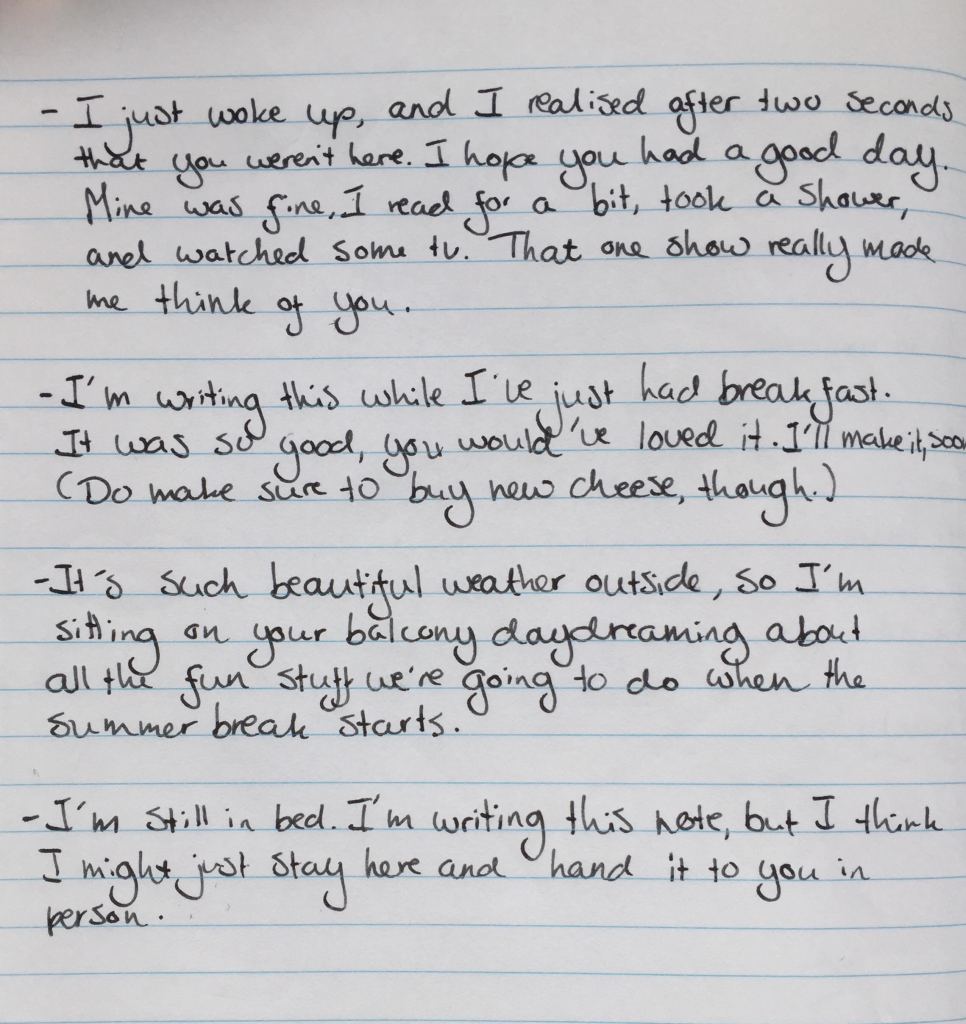 - I just woke up, and I realised after two seconds
that you weren't here. I hope you had a good day.
Mine was fine, I read for a bit, took a shower,
and watched some tv. That one show really made
me think of you.
- I'm writing this while I've just had breakfast.
It was so good, you would've loved it. I'll make it, soon
(Do make sure to buy new cheese, though.)
- It's such beautiful weather outside, so I'm
sitting on your balcony daydreaming about
all the fun stuff we're going to do when the
summer break starts.
- I'm still in bed. I'm writing this note, but I think
I might just stay here and hand it to you in
person.